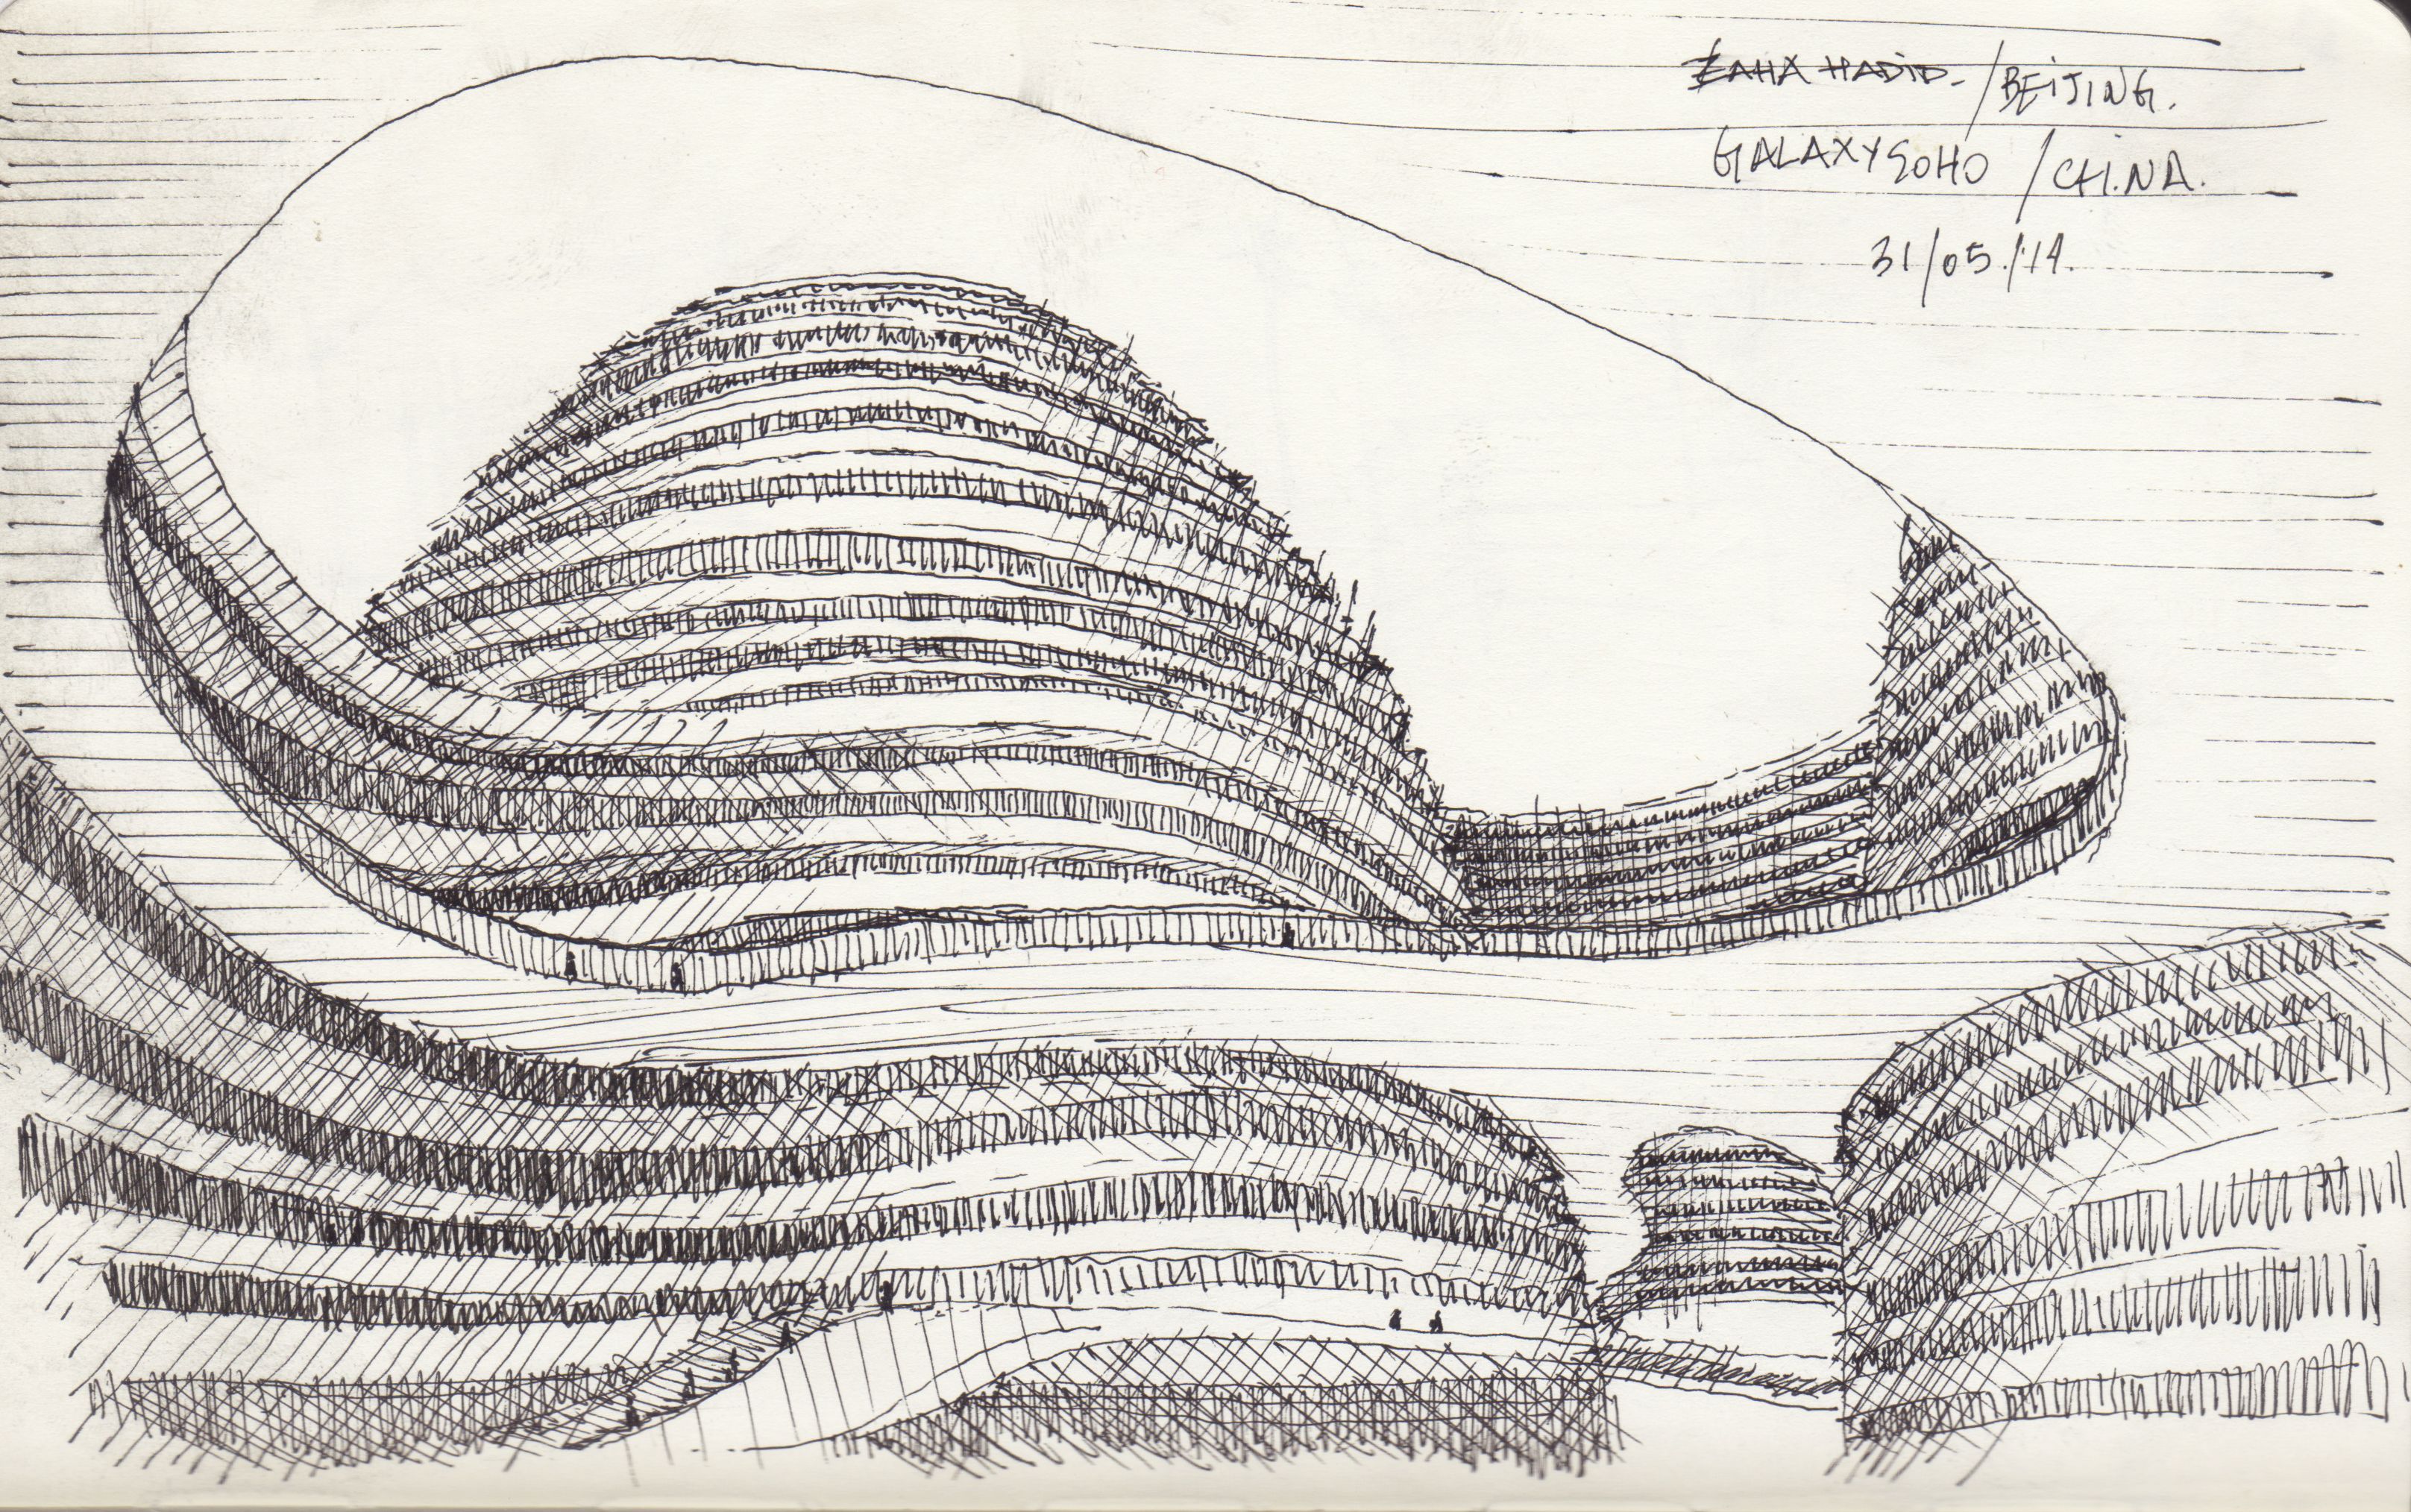 ZAHA HADID - / BEIJING.
GALAXY SOHO / CHINA.
31/05/14.